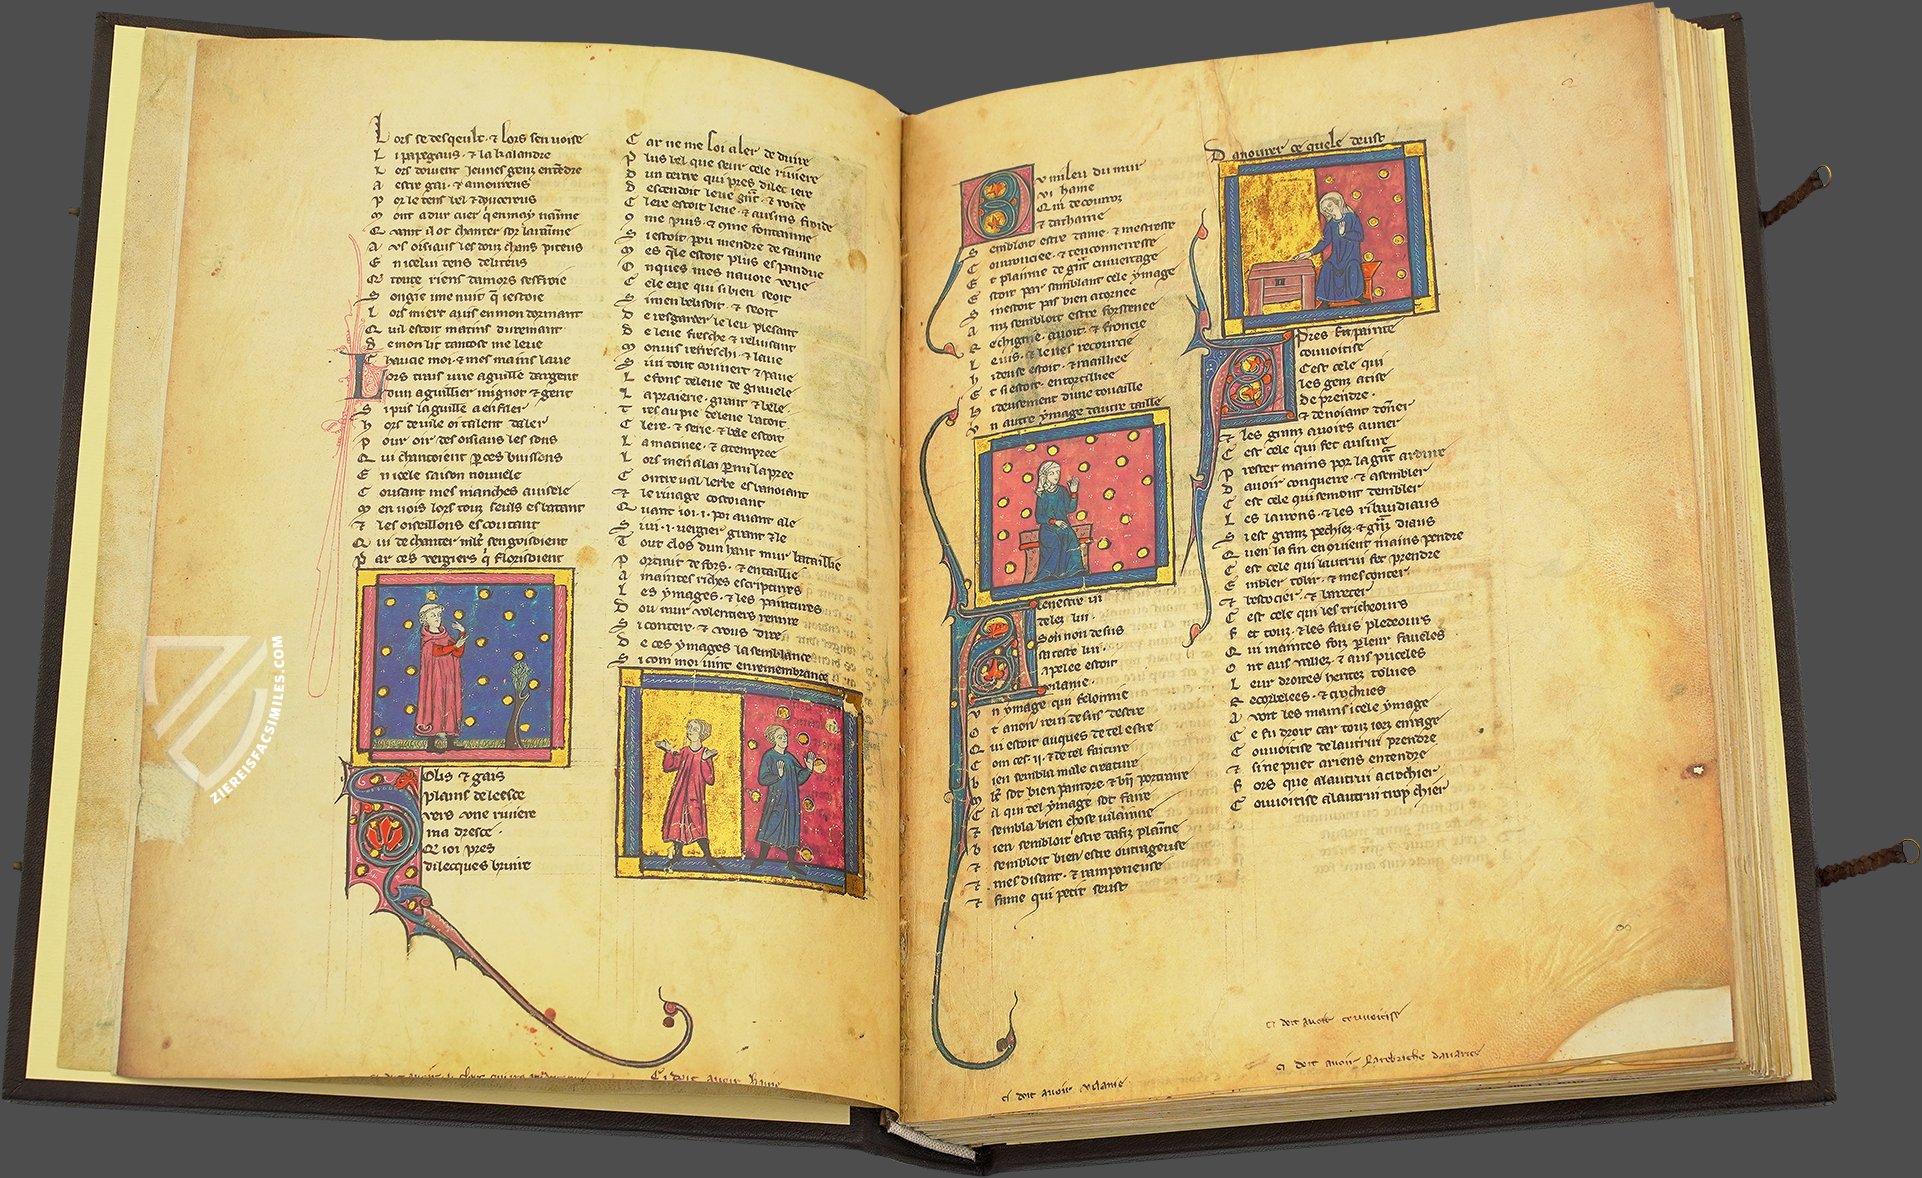 Lors se desqeult · ⁊ lors sen uoise
L i papegaus · ⁊ la kalandre
L ors doiuent jeunes genz entēdre
A estre gai · ⁊ amoureus
P or le tens bel ⁊ doucereus
M out a dur cuer q̄ en may naī̄me
Q uant il ot chanter sor la raī̄me
A us oisiaus les douz chans piteus
E n icelui tens deliteus
Q toute riens damors seffroie
S ongie une nuit q̄ iestoie
L ors miert auis en mon dormant
Q uil estoit matins durement
D e mon lit tantost me leue
C haucie moi · ⁊ mes mains laue
Lors trais une aguille dargent
Doun aguillier mignot ⁊ gent
S i pris laguille a enfiler
H ors de uile oi talent daler
P our oir des oisiaus les sons
Q ui chantoient p̄ ces buissons
E n icele saison nouuele
C ousant mes manches a uisele
M en uois lors touz seuls esbatant
⁊ les oiseillons escoutant
Q ui de chanter mlt̄ sengoissoient
P ar ces vergiers q̄ florissoient
Iolis ⁊ gais
plains de leesce
vers vne riuiere
ma dresce ·
Q ioi pres
dilecques bruire
C ar ne me soi aler deduire
P lus bel que seur cele riuiere
D un tertre qui pres dilec iere
D escendoit leue gn̄t · ⁊ roide
C lere estoit leue · ⁊ ausins froide
O me puis · ⁊ ōme fontainne
S i estoit pou mendre de sainne
M es q̄le estoit plus espandue
O nques mes nauoie veue
C ele eue qui si bien seoit
S i men belisoit · ⁊ seoit
D e resgarder le leu plesant
D e leue fresche ⁊ reluisant
M on uis refreschi · ⁊ laue
S i ui tout couuert ⁊ paue
L e fons de leue de grauele
L a praierie · grant ⁊ bele
T res au pie de leue batoit
C lere · ⁊ serie · ⁊ bele estoit
L a matinee · ⁊ atempree
L ors men alai p̄mi la pree
C ontreual lerbe esbanoiant
⁊ le riuage costoiant
Q uant ioi · i · poi auant ale
S i ui · i · vergier grant ⁊ le
T out clos dun haut mur bataillie
P ortrait defors · ⁊ entaillie
A maintes riches escriptures
L es ymages · ⁊ les paintures
D ou mur volentiers remire
S i conteré · ⁊ vous dire
D e ces ymages la semblance
S i com moi uint en remembrance
Ci doit auoir haine
Ou milieu du mur
vi haine
Qui de courouz
⁊ dathaine
S embloit estre dame · ⁊ mestresse
C ourouciee · ⁊ tenconnerresse
E t plainne de gn̄t cuuertage
E stoit par semblant cele ymage
S i nestoit pas bien atornee
A inz sembloit estre forsenee
R echignie · auoit · ⁊ froncie
L e uis · ⁊ le nes recourcie
H ideuse estoit · ⁊ roulliee
E t si estoit · entortilliee
H ideusement dune touaille
V n autre ymage dautre taille
A senestre ui
delez lui
Son non desus
sa teste lui
Apelee estoit
vilanie
V n ymage qui felonnie
O t anon reui desus destre
Q ui estoit auques de tel estre
C om ces · ii · ⁊ de tel faiture
B ien sembla male creature
M lt̄ sot bien paindre ⁊ bn̄ portraire
C il qui tel ymage sot faire
⁊ sembla bien chose vilainne
B ien sembloit estre dafiz plainne
⁊ sembloit bien estre outrageuse
⁊ · mes disant · ⁊ ramponeuse
⁊ · fame qui petit seust
D anourer ce quele deust
Apres fu painte
couuoitise
C'est cele qui
les genz atise
de prendre ·
⁊ de noiant dōner
⁊ les granz auoirs auner
C est cele qui fet a usure
P rester mains por la gn̄t ardure
D auoir conquerre · ⁊ assembler
C est cele qui semont dembler
L es larrons · ⁊ les ribaudiaus
S i est granz pechiez · ⁊ gn̄z diaus
Q uen la fin en quient mains pendre
C est cele qui lautrui fet prendre
E mbler tolir · ⁊ mesconter
⁊ bescocier · ⁊ bareter
C est cele qui les tricheours
F et touz · ⁊ les faus pledeours
Q ui maintes foiz p̄ leur faueles
O nt aus vallez · ⁊ aus puceles
L eur droites heritez tolues
R ecorbelees · ⁊ crochues
A voit les mains icele ymage
C e fu droit car touz iorz enrage
C ouuoitise de lautrui prendre
⁊ si ne puet a riens entendre
F ors que a lautrui acrochier
C ouuoitise a lautrui trop chier
ci doit auoir vilanie
ci doit auoir couuoitise
ci doit auoir darice
ZIEREISFACSIMILES.COM